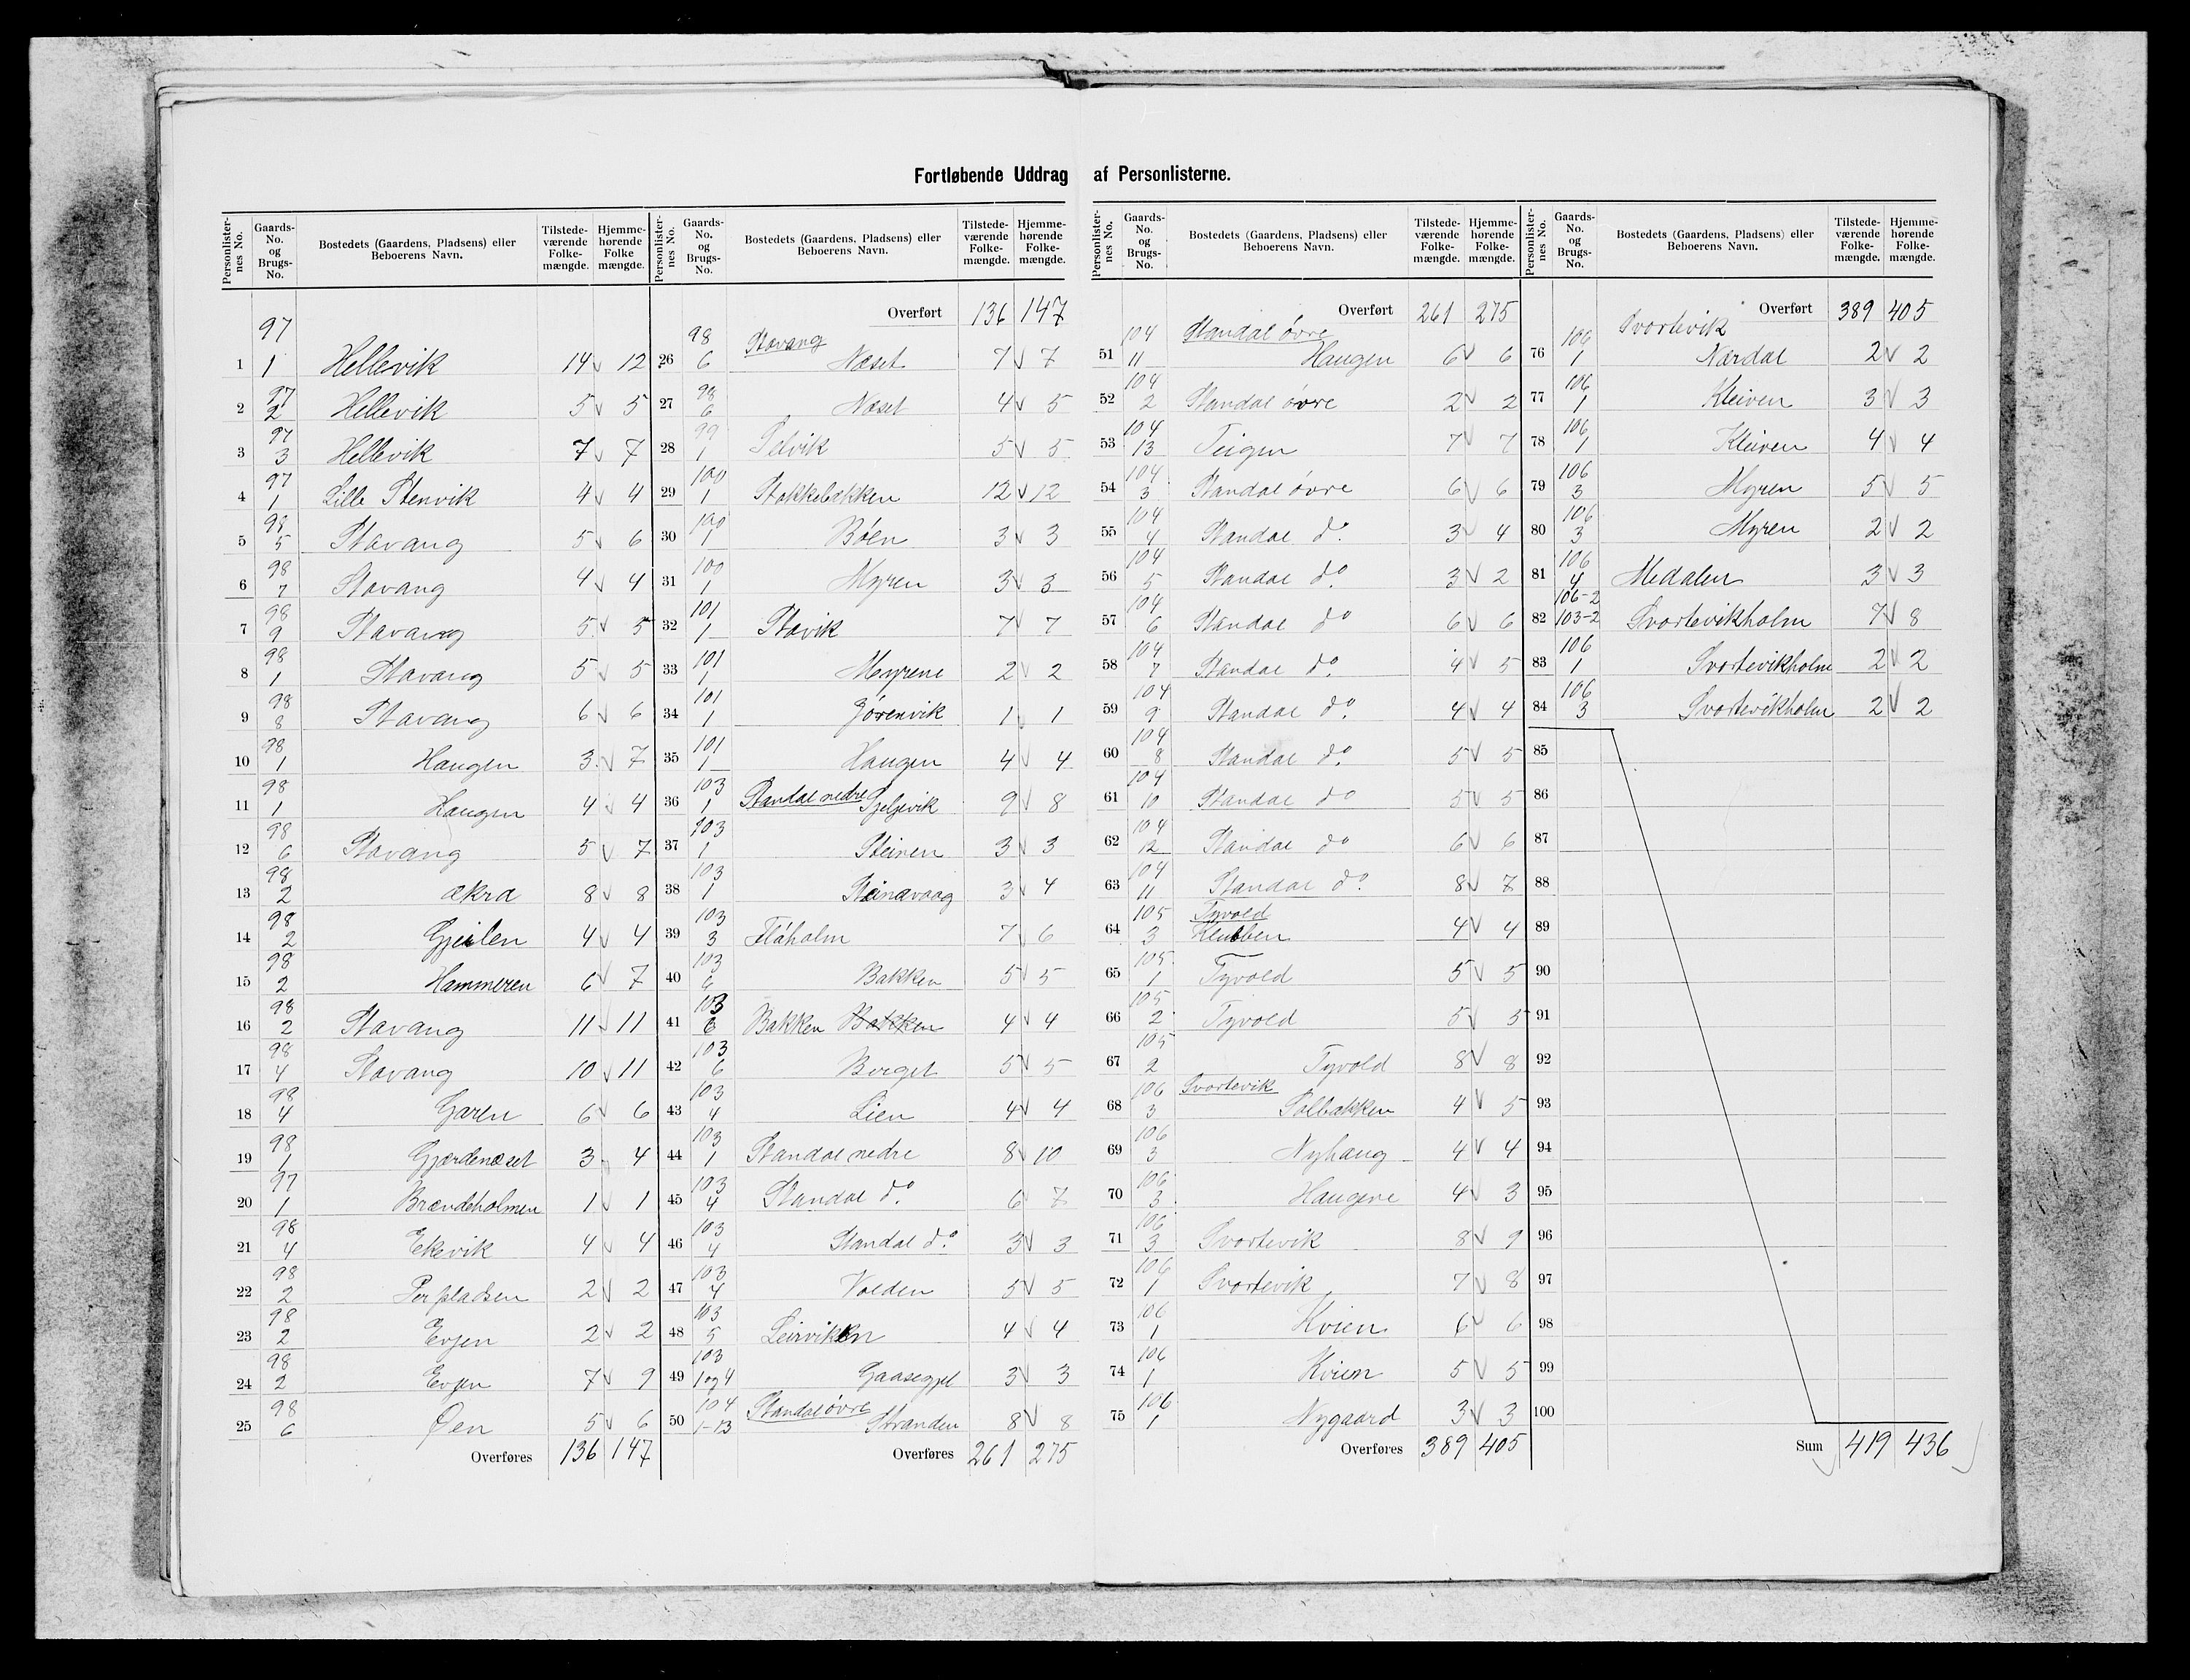 Fortløbende Uddrag af Personlisterne.
Personlister-nes No. Gaards-No. og Brugs-No. Bostedets (Gaardens, Pladsens) eller Beboerens Navn. Tilstede-værende Folke-mængde. Hjemme-hørende Folke mængde.
1 97 1 Hellevik 14 v 12
2 97 2 Hellevik 5 v 5
3 97 3 Hellevik 7 v 7
4 97 1 Lille Stenvik 4 v 4
5 98 5 Stavang 5 v 6
6 98 7 Stavang 4 v 4
7 98 9 Stavang 5 v 5
8 98 1 Stavang 5 v 5
9 98 8 Stavang 6 v 6
10 98 1 Haugen 3 v 7
11 98 1 Haugen 4 v 4
12 98 6 Stavang 5 v 7
13 98 2 Ækra 8 v 8
14 98 2 Gjeilen 4 v 4
15 98 2 Hammeren 6 v 7
16 98 2 Stavang 11 v 11
17 98 4 Stavang 10 v 11
18 98 4 Garen 6 v 6
19 98 1 Gjærdenæset 3 v 4
20 97 1 Brændeholmen 1 v 1
21 98 4 Ekevik 4 v 4
22 98 2 Perpladsen 2 v 2
23 98 2 Evjen 2 v 2
24 98 2 Evjen 7 v 9
25 98 6 Øen 5 v 6
Overføres 136 147
Personlister-nes No. Gaards-No. og Brugs-No. Bostedets (Gaardens, Pladsens) eller Beboerens Navn. Tilstede-værende Folke-mængde. Hjemme-hørende Folke-mængde.
Overført 136 147
26 98 6 Stavang Næset 7 v 7
27 98 6 Næset 4 v 5
28 99 1 Selvik 5 v 5
29 100 1 Stokkebækken 12 v 12
30 100 1 Bøen 3 v 3
31 100 1 Myren 3 v 3
32 101 1 Stavik 7 v 7
33 101 1 Myrene 2 v 2
34 101 1 Jørenvik 1 v 1
35 101 1 Haugen 4 v 4
36 103 1 Standal nedre Sjeljevik 9 v 8
37 103 1 Steinen 3 v 3
38 103 1 Steinavaag 3 v 4
39 103 3 Flåholm 7 v 6
40 103 6 Bakken 5 v 5
41 103 6 Bakken Bakken 4 v 4
42 103 6 Berget 5 v 5
43 103 4 Lien 4 v 4
44 103 1 Standal nedre 8 v 10
45 103 4 Standal do. 6 v 7
46 103 4 Standal do. 3 v 3
47 103 4 Volden 5 v 5
48 103 5 Leirvikken 4 v 4
49 103 1 og 4 Gaasegjel 3 v 3
50 104 1-13 Standal øvre Stranden 8 v 8
Overføres 261 275
Personlister-nes No. Gaards-No. og Brugs-No. Bostedets (Gaardens, Pladsens) eller Beboerens Navn. Tilstede-værende Folke-mængde. Hjemme-hørende Folke-mængde.
Overført 261 275
51 104 11 Standal øvre Haugen 6 v 6
52 104 2 Standal øvre 2 v 2
53 104 13 Teigen 7 v 7
54 104 3 Standal øvre 6 v 6
55 104 4 Standal do. 3 v 4
56 104 5 Standal do. 3 v 2
57 104 6 Standal do 6 v 6
58 104 7 Standal do. 4 v 5
59 104 9 Standal do. 4 v 4
60 104 8 Standal do. 5 v 5
61 104 10 Standal do 5 v 5
62 104 12 Standal do 6 v 6
63 104 11 Standal do. 8 v 7
64 105 3 Tyvold Klubben 4 v 4
65 105 1 Tyvold 5 v 5
66 105 2 Tyvold 5 v 5
67 105 2 Tyvold 8 v 8
68 106 3 Svortevik Solbakken 4 v 5
69 106 3 Nyhaug 4 v 4
70 106 3 Haugene 4 v 3
71 106 3 Svortevik 8 v 9
72 106 1 Svortevik 7 v 8
73 106 1 Kvien 6 v 6
74 106 1 Kvien 5 v 5
75 106 1 Nygaard 3 v 3
Overføres 389 405
Personlister-nes No. Gaards-No. og Brugs-No. Bostedets (Gaardens, Pladsens) eller Beboerens Navn. Tilstede-værende Folke-mængde. Hjemme-hørende Folke-mængde.
Overført 389 405
76 106 1 Svortevik Nærdal 2 v 2
77 106 1 Kleiven 3 v 3
78 106 1 Kleiven 4 v 4
79 106 3 Myren 5 v 5
80 106 3 Myren 2 v 2
81 106 4 Medalen 3 v 3
82 106-2 103-2 Svortevikholm 7 v 8
83 106 1 Svortevikholm 2 v 2
84 106 3 Svortevikholm 2 v 2
85
86
87
88
89
90
91
92
93
94
95
96
97
98
99
100
Sum 419 436